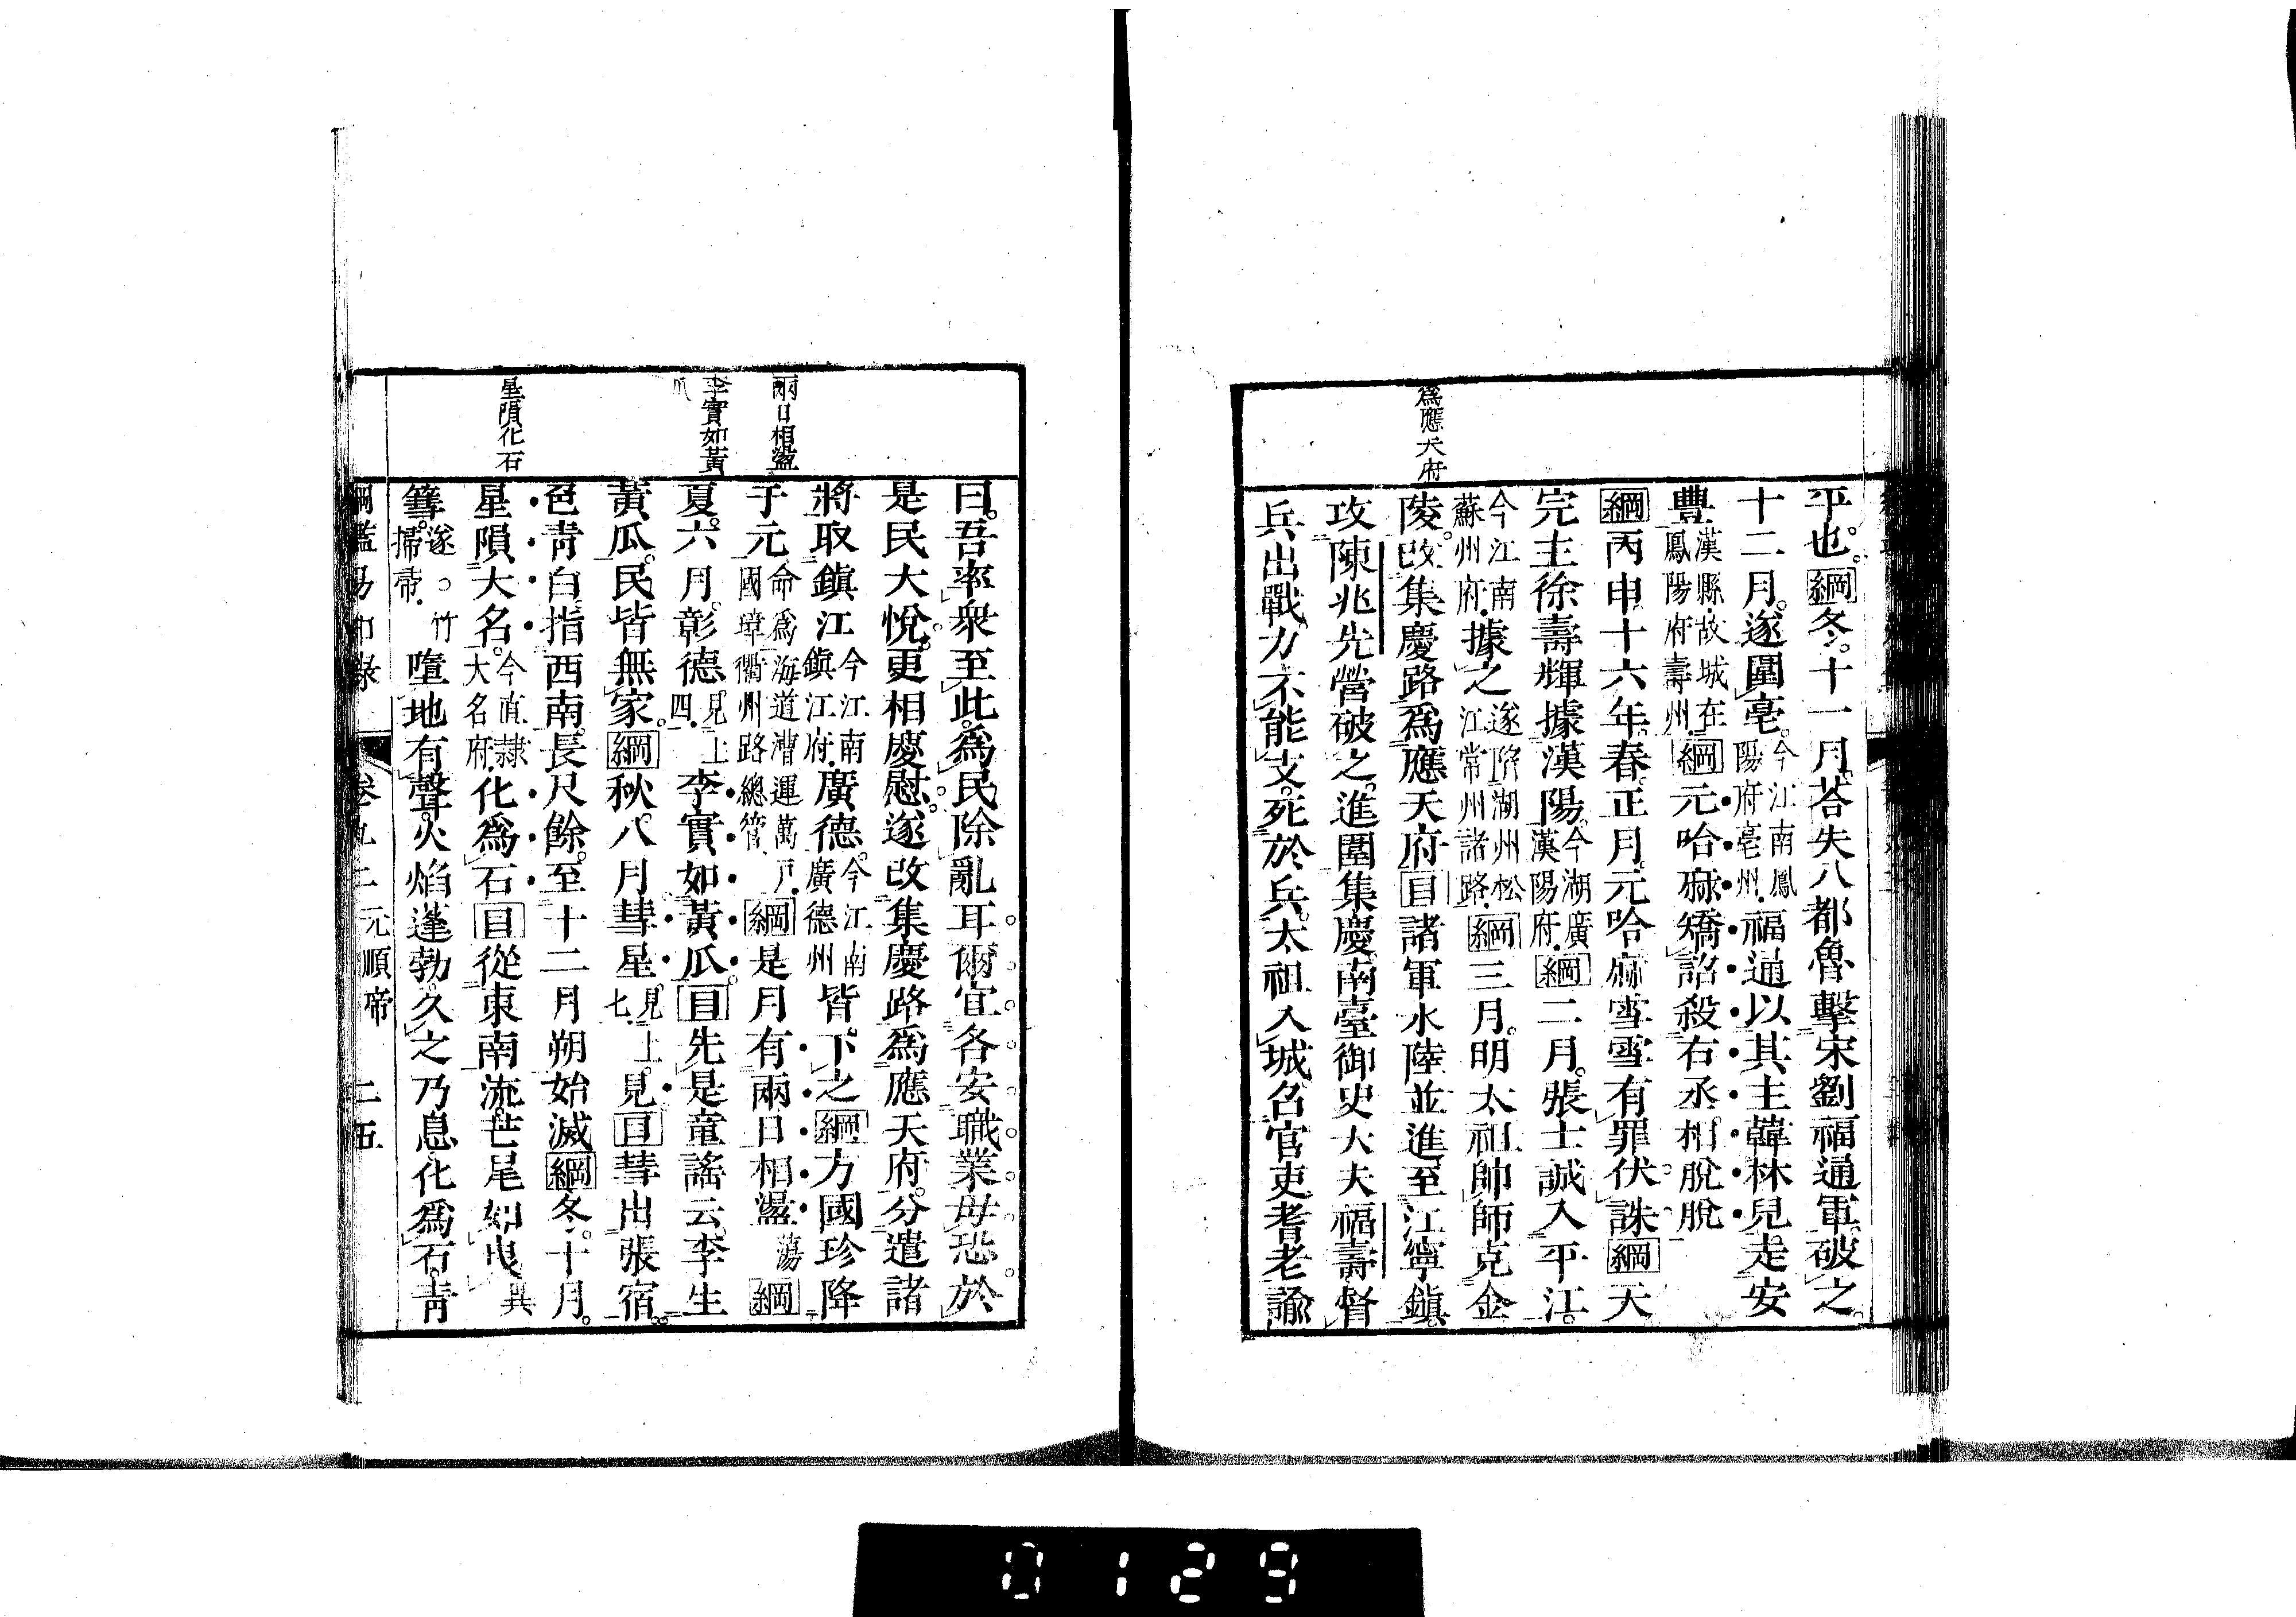 為應天府
平也。綱冬。十一月。荅失八都魯擊宋劉福通軍。破之。
十二月。遂圍亳。今江南鳳陽府亳州。福通以其主韓林兒走安
豐漢縣。故城在鳳陽府壽州。綱元哈麻矯詔殺右丞。相脫脫
綱丙申十六年。春。正月。元哈麻雪雪有罪伏誅綱天
完主徐壽輝據漢陽。今湖廣漢陽府。綱二月。張士誠入平江。
今江南蘇州府。據之遂陷湖州松江常州諸路。綱三月。明太祖帥師克金
陵。改集慶路為應天府目諸軍水陸並進。至江寧鎮。
攻陳兆先營破之。進圍集慶。南臺御史大夫福壽督
兵出戰。力不能支。死於兵。太祖入城。召官吏耆老諭
兩日相盪
李實如黃瓜
星隕化石
曰。吾率衆至此。為民除亂耳。爾宜各安職業。毋恐。於
是民大悅。更相慶慰。遂改集慶路為應天府。分遣諸
將取鎮江今江南鎮江府。廣德。今江南廣德州皆下之綱方國珍降
于元命為海道漕運萬戶。國璋衢州路總管。綱是月有兩日相盪。蕩綱
夏。六月。彰德。見上四。李實如黃瓜。目先是童謠云。李生
黃瓜。民皆無家。綱秋。八月彗星。見上七。見目彗出張宿。
色青白。指西南。長尺餘。至十二月朔始滅綱冬。十月。
星隕大名。今直隸大名府。化為石目從東南流。芒尾如曳
篲。遂。竹掃帚。墮地有聲。火焰蓬勃。久之乃息。化為石。青
綱鑑易知錄 卷九二 元順帝 二五
0129